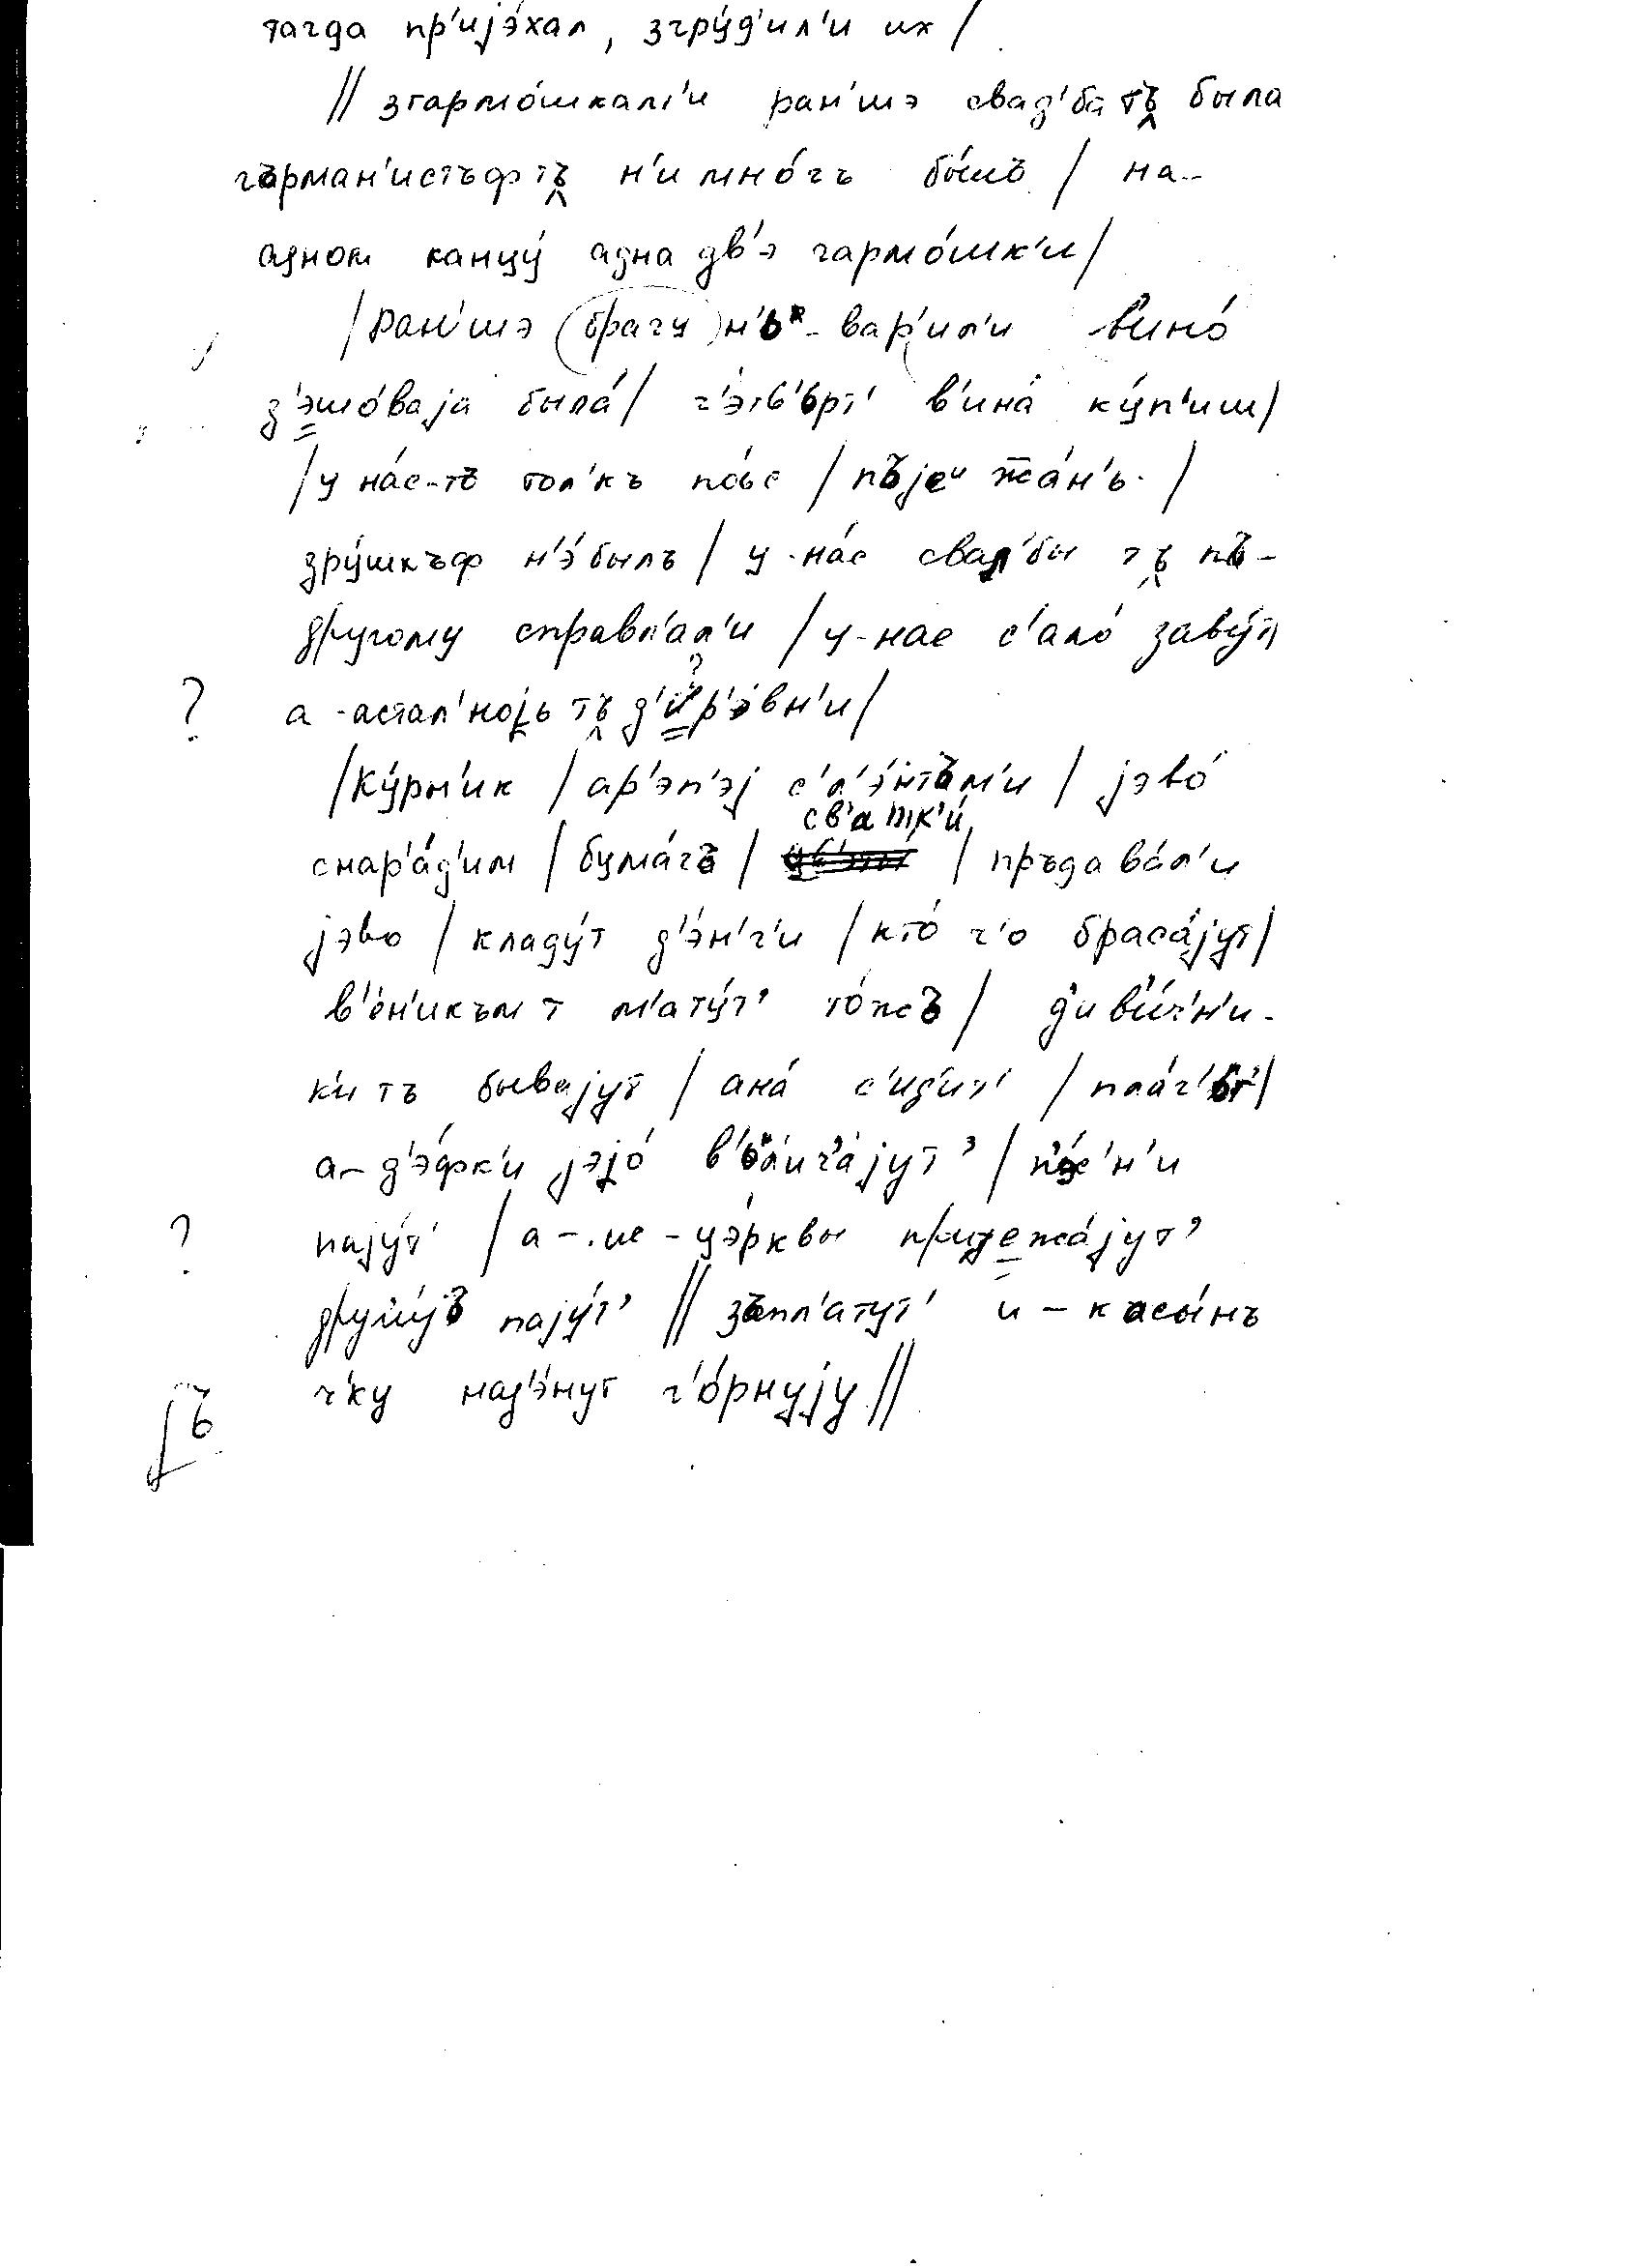 тагда пр'иjэ́хал, згру́д'ил'и их /
// згармо́шкам'и ран'шэ свад'ба тъ была
гърман'истъф тъ н'и мно́гъ бы́лъ / на-
адном канцу́ адна дв'э гармо́шк'и /
/ ран'шэ (брагу) н'ь - вар'ил'и в'ино́
д'эшо́ваjа была́ / ч'э́тв'ьрт' в'ина́ ку́п'иш /
/ у на́с-тъ тол'къ по́jс / пъjеи жа́н'ь /
зру́шкъф н'э́ былъ / у-на́с свад'бы тъ пъ-
другому справл'ал'и / у-нас с'ало́ заву́т
? а-астал'ноjь тъ д'ир'э́вн'и /
/ ку́рн'ик / ар'эп'эj с'л'э́нтъм'и / jэво́
св'атк'и́
снар'а́д'им / бума́гъ / / пръдава́л'и
jэво / кладу́т д'э́н'г'и / кто́ ч'о браса́jут /
в'е́н'икъм т м'ату́т' то́жъ / д'ив'и́ч'н'и-
к'и тъ бываjут / ана́ с'ид'ит' / пла́ч'ьт' /
а-д'э́фк'и jэjо́ в'ьл'ич'а́jут' / п'э́с'н'и
? паjу́т' / а-ис-цэ́рквы приjежа́jут'
другу́jъ паjу́т' // зъпл'атут' и-касы́нъ
ч'ку над'э́нут ч'о́рнуjу //
ъ